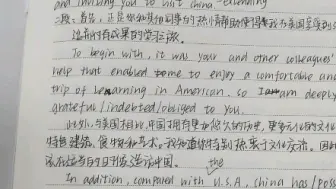 and inviting you to visit china
二段：首先，正是你和其他同事的热情帮助使得我在美国享受到
这有成果的学习旅。
To begin with, it was your and other colleagues'
help that enabled me to enjoy a comfortable and
trip of learning in American. so I am deeply
grateful / indebted / obliged to You.
此外，与美国相比，中国拥有更加悠久的历史，更多元化的文化
特色建筑，食物和艺术。我知道你特别热衷于文化交流，因
the
In addition, compared with U.S.A, china has/poss